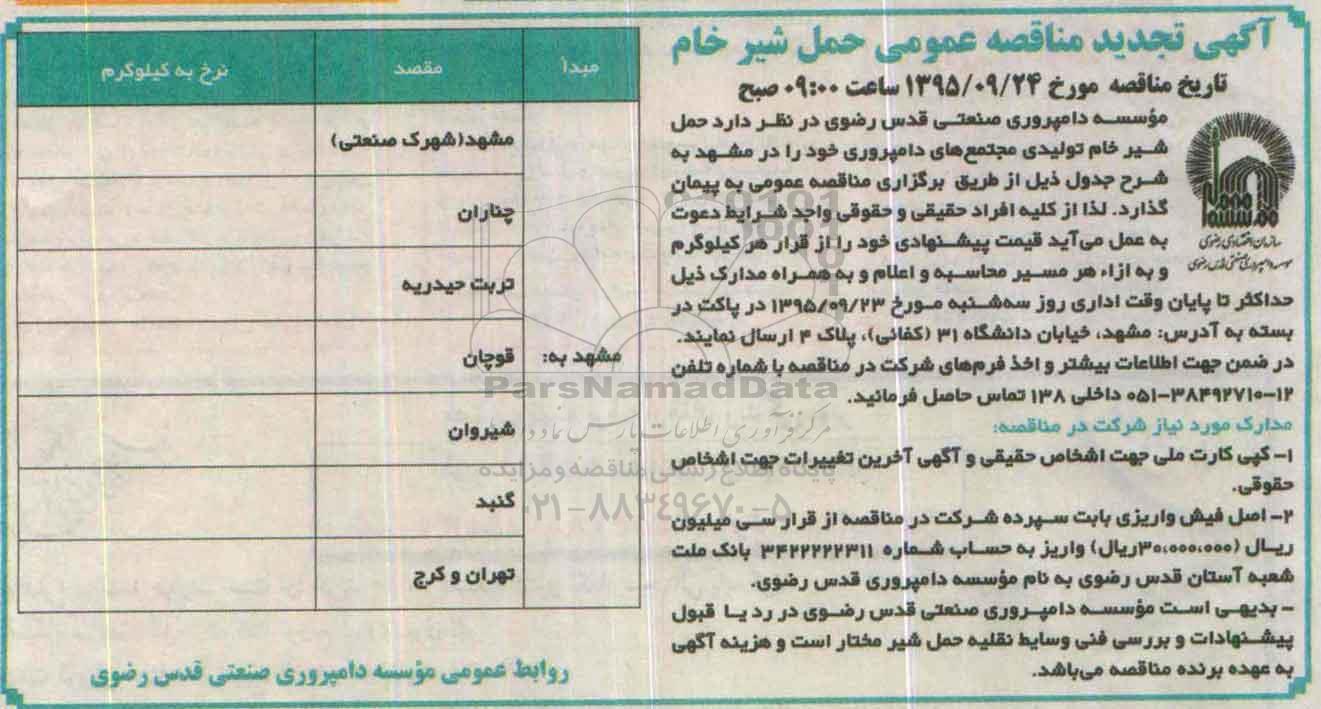 آگهی تجدید مناقصه عمومی حمل شیر خام
تاریخ مناقصه مورخ ۱۳۹۵/۰۹/۲۴ ساعت ۰۹:۰۰ صبح
مؤسسه دامپروری صنعتی قدس رضوی در نظر دارد حمل
شیر خام تولیدی مجتمع‌های دامپروری خود را در مشهد به
شرح جدول ذیل از طریق برگزاری مناقصه عمومی به پیمان
گذارد. لذا از کلیه افراد حقیقی و حقوقی واجد شرایط دعوت
به عمل می‌آید قیمت پیشنهادی خود را از قرار هر کیلوگرم
و به ازاء هر مسیر محاسبه و اعلام و به همراه مدارک ذیل
حداکثر تا پایان وقت اداری روز سه‌شنبه مورخ ۱۳۹۵/۰۹/۲۳ در پاکت در
بسته به آدرس: مشهد، خیابان دانشگاه ۳۱ (کفائی)، پلاک ۴ ارسال نمایند.
در ضمن جهت اطلاعات بیشتر و اخذ فرم‌های شرکت در مناقصه با شماره تلفن
۰۵۱-۳۸۴۹۲۷۱۰-۱۲ داخلی ۱۳۸ تماس حاصل فرمائید.
مدارک مورد نیاز شرکت در مناقصه:
۱- کپی کارت ملی جهت اشخاص حقیقی و آگهی آخرین تغییرات جهت اشخاص
حقوقی.
۲- اصل فیش واریزی بابت سپرده شرکت در مناقصه از قرار سی میلیون
ریال (۳۰،۰۰۰،۰۰۰ریال) واریز به حساب شماره ۳۴۲۲۲۲۲۳۱۱ بانک ملت
شعبه آستان قدس رضوی به نام مؤسسه دامپروری قدس رضوی.
- بدیهی است مؤسسه دامپروری صنعتی قدس رضوی در رد یا قبول
پیشنهادات و بررسی فنی وسایط نقلیه حمل شیر مختار است و هزینه آگهی
به عهده برنده مناقصه می‌باشد.
سازمان اقتصادی رضوی
موسسه دامپروری صنعتی قدس رضوی
مبدأ مقصد نرخ به کیلوگرم
مشهد(شهرک صنعتی)
چناران
تربت حیدریه
مشهد به: قوچان
شیروان
گنبد
تهران و کرج
روابط عمومی مؤسسه دامپروری صنعتی قدس رضوی
ParsNamadData
مرکز فرآوری اطلاعات پارس نماد داده
پایگاه اطلاع رسانی مناقصه و مزایده
۰۲۱-۸۸۳۴۹۶۷۰-۵